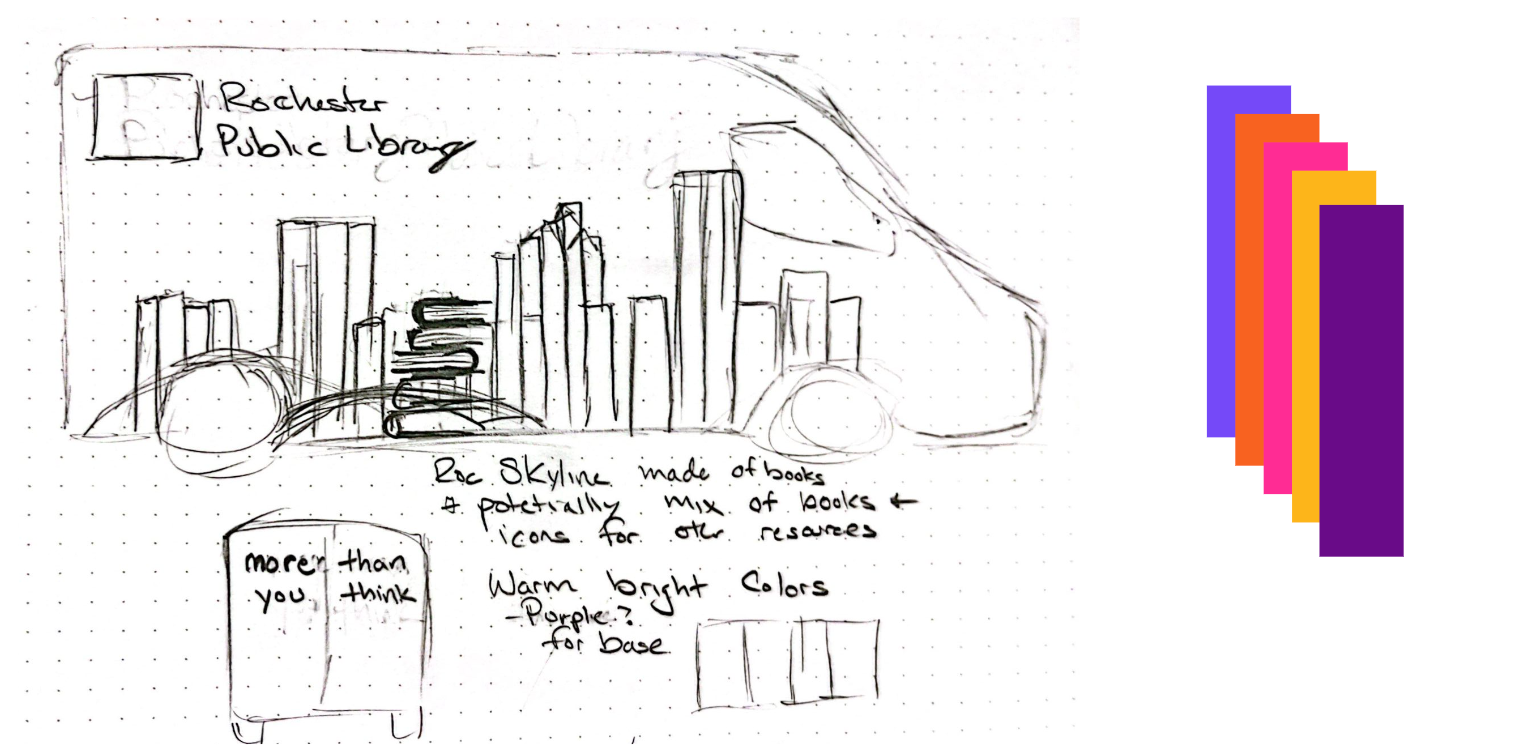 Rochester
Public Library
Roc Skyline made of books
& potetrially mix of books &
icons for othr resources
more than
you think
Warm bright Colors
- Purple?
for base